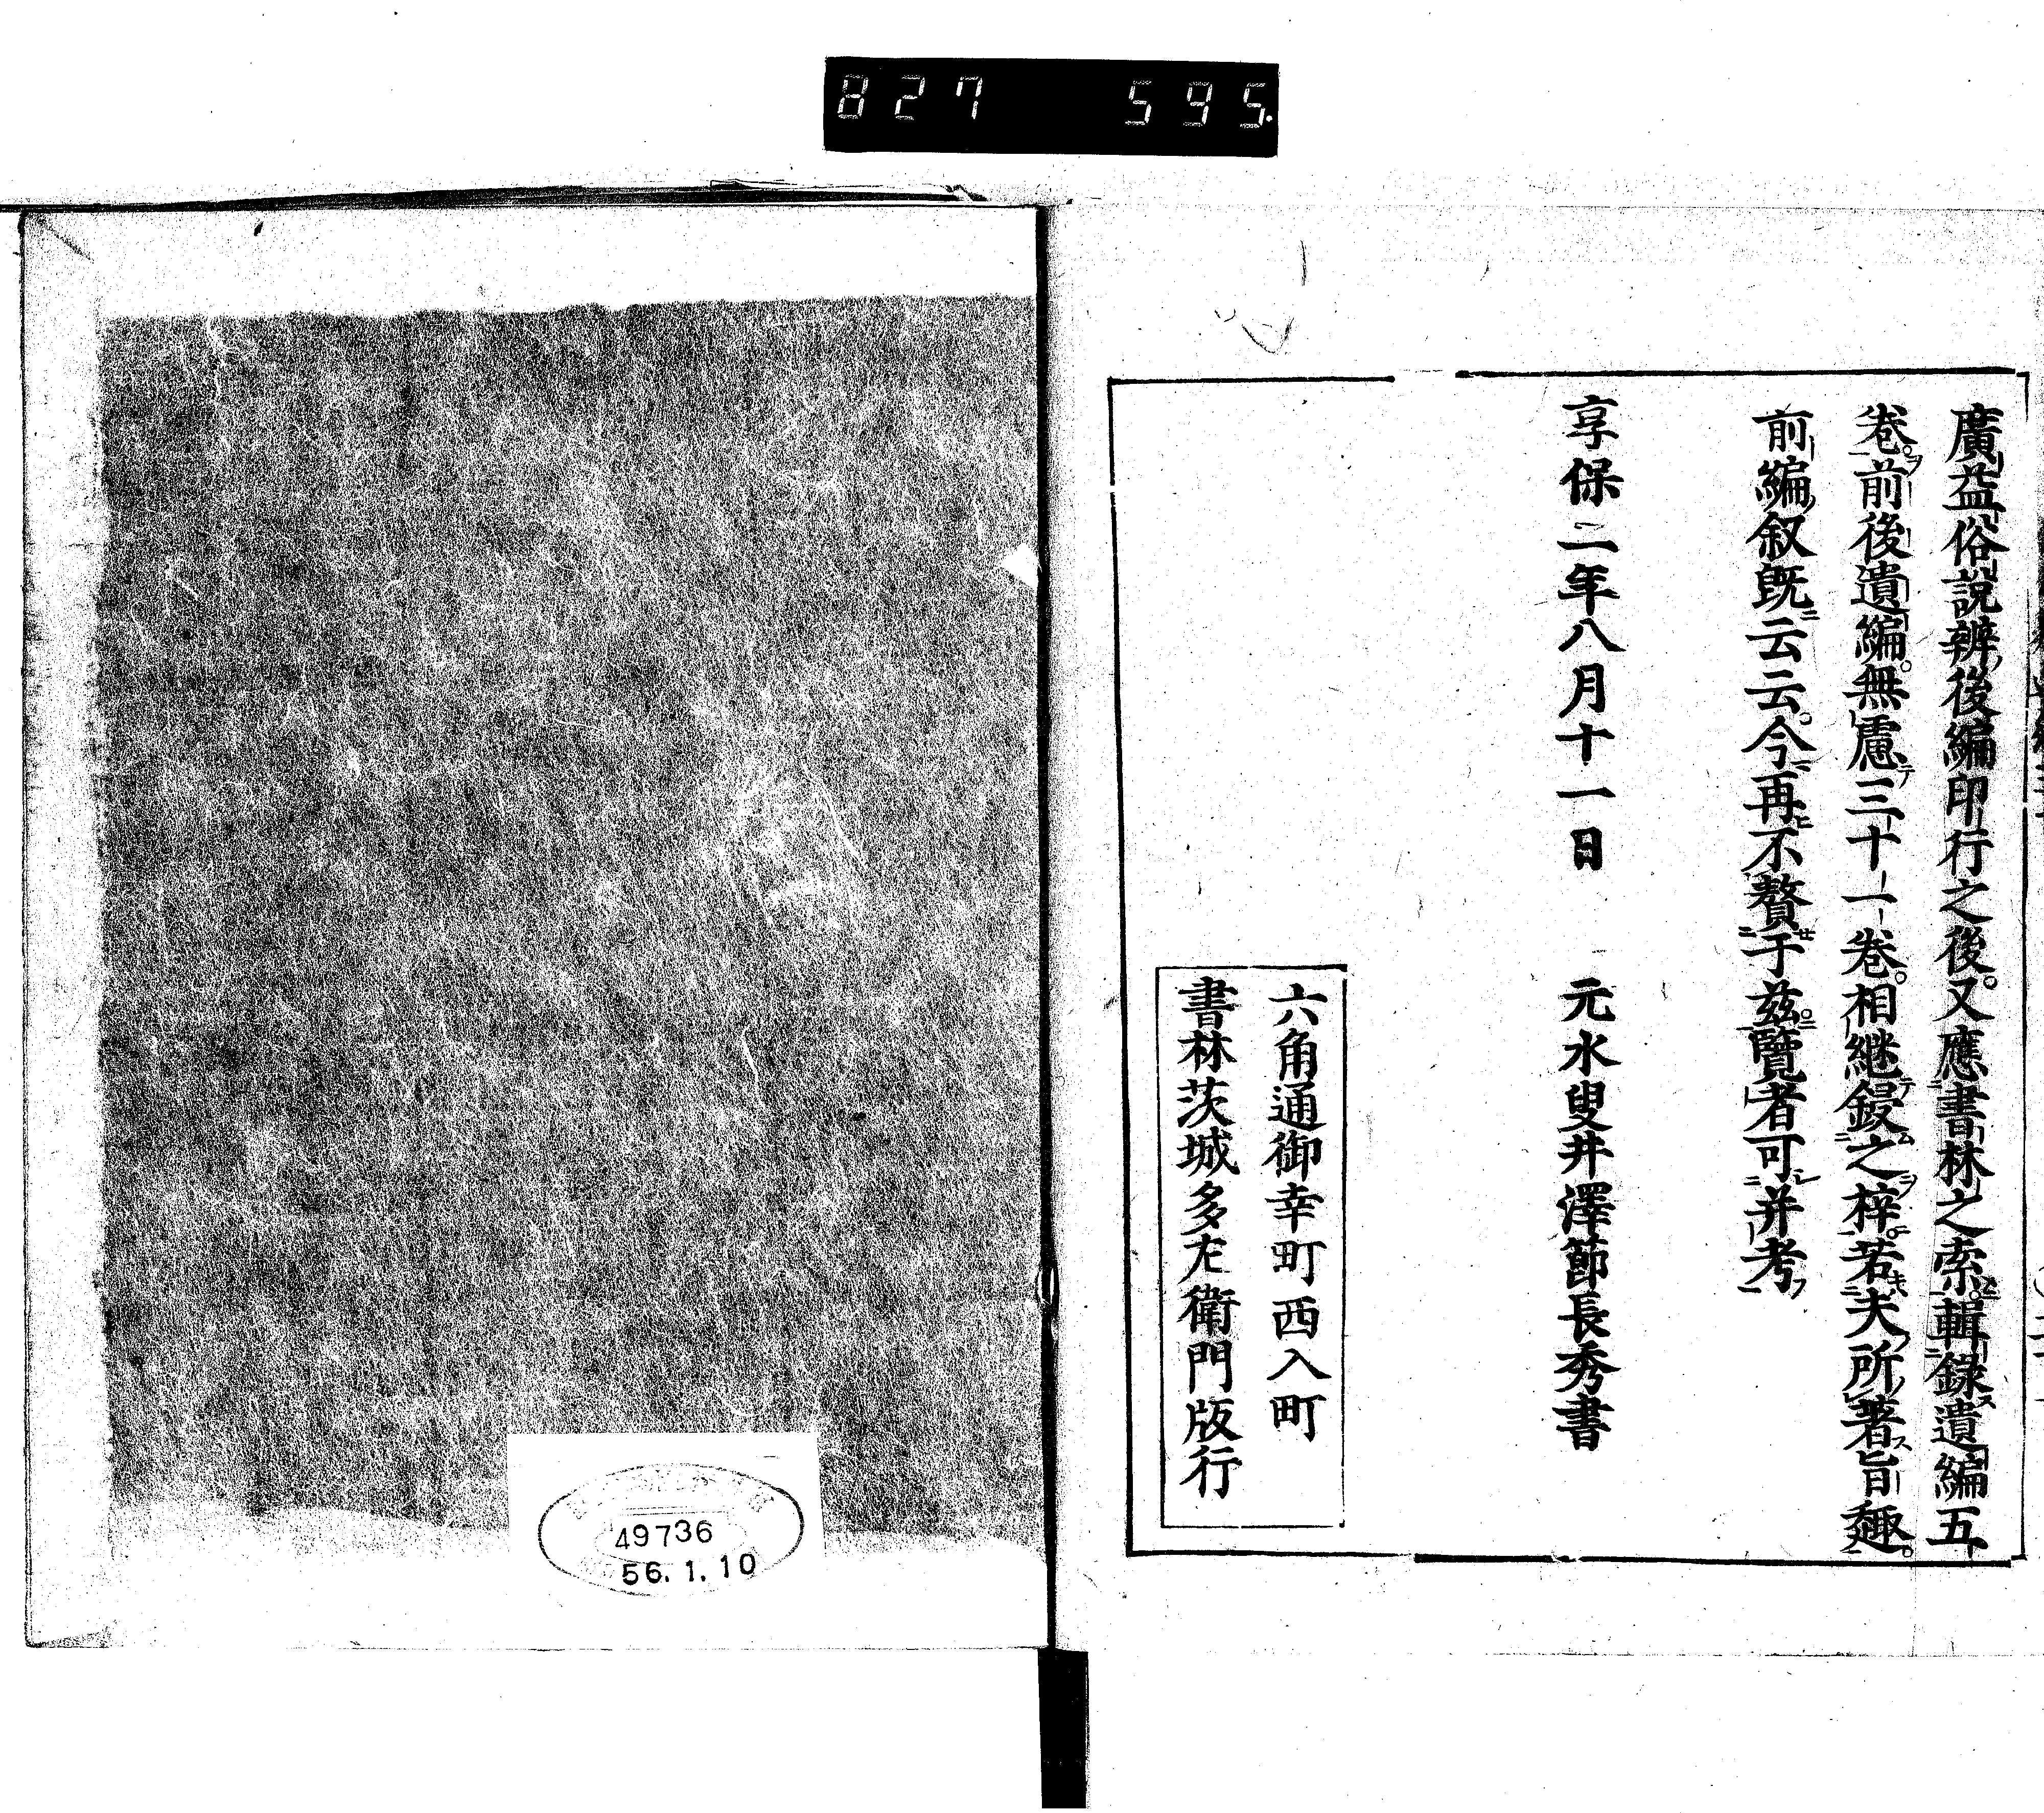 827 595.
廣益俗說辨後編印行之後。又應書林之索。輯錄遺編五
卷。前後遺編。無慮三十一卷。相継鋟之梓。若夫所著旨趣。
前編叙既云云。今再不贅于兹。覽者可并考
享保二年八月十一日 元水叟井澤節長秀書
六角通御幸町西入町
書林茨城多左衛門版行
49736
56.1.10